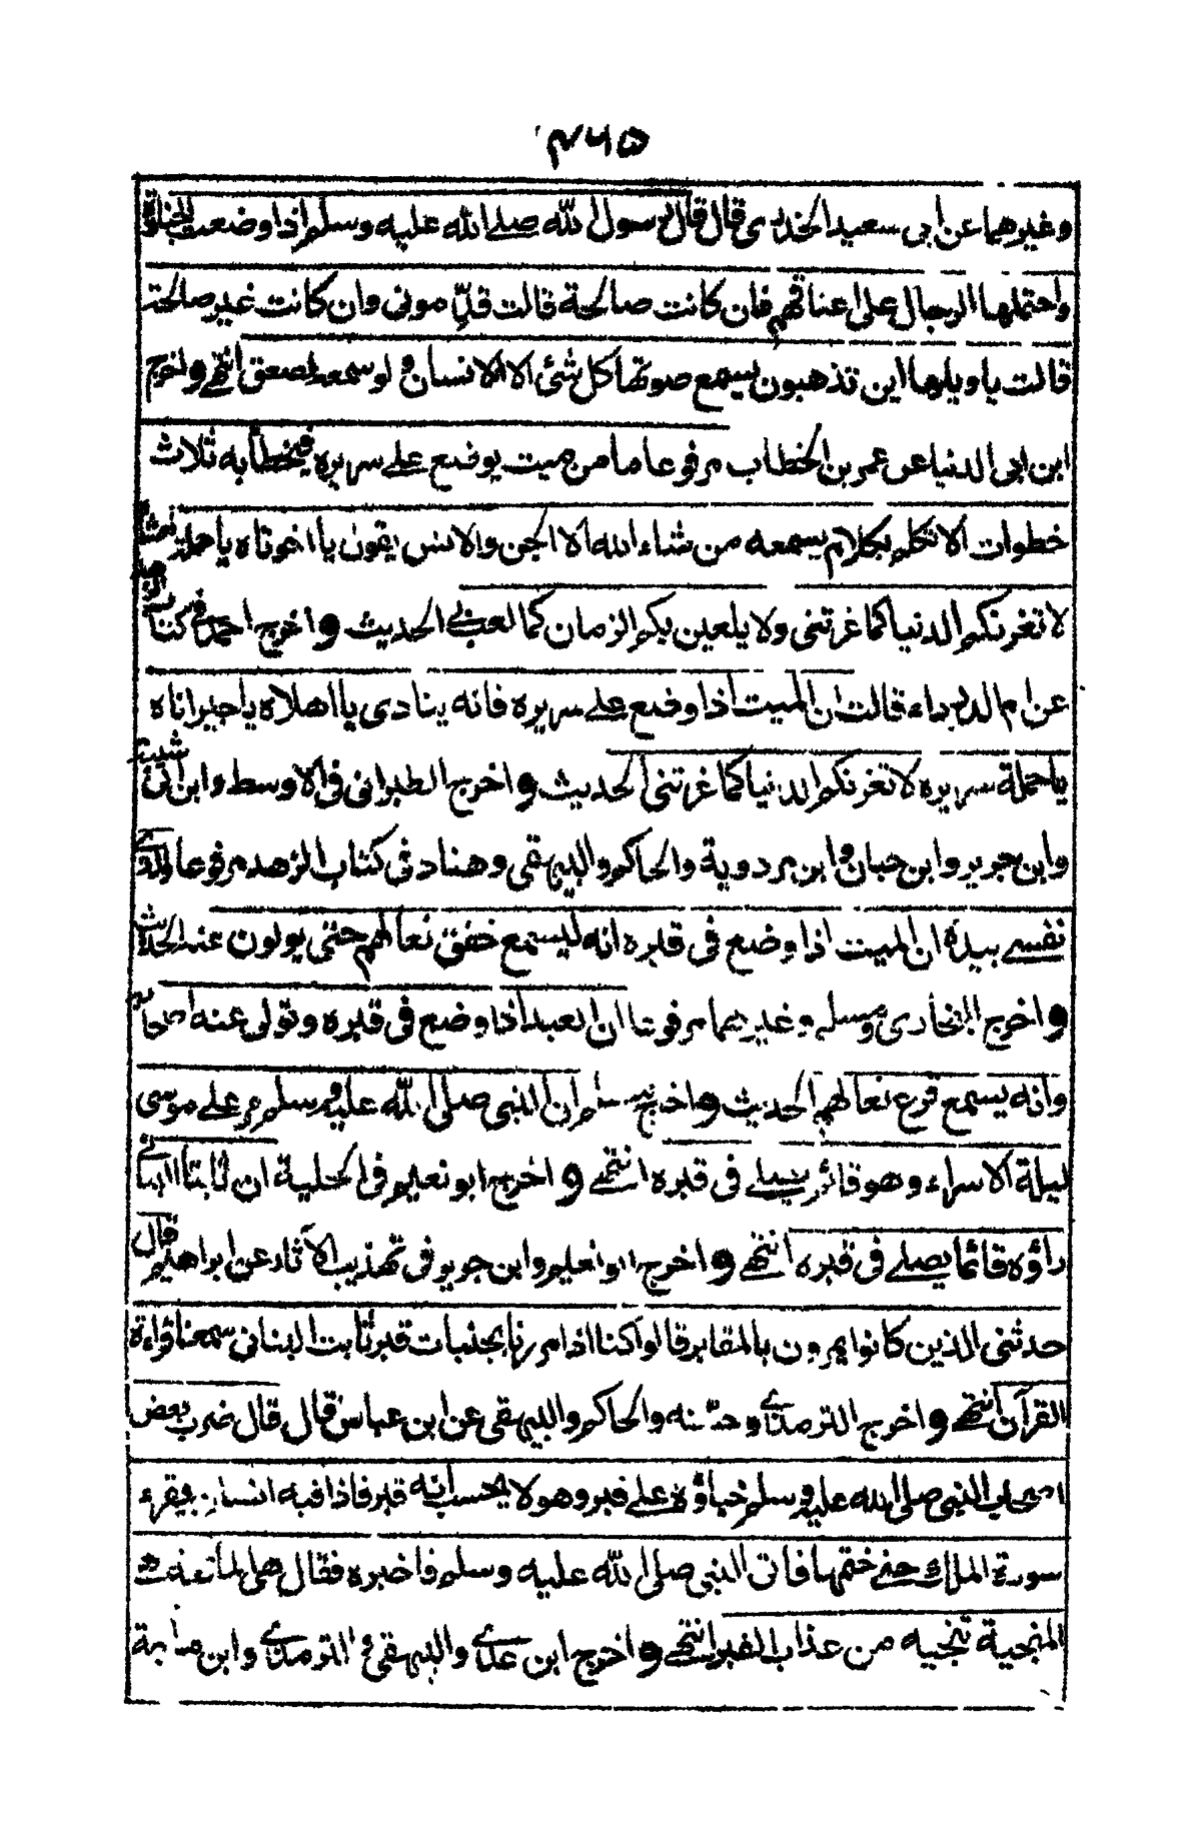 ۴۶۵
وغيرهما عن ابى سعيد الخدرى قال قال رسول الله صلے الله عليه وسلم اذا وضعت الجنازة
واحتملها الرجال على اعناقهم فان كانت صالحة قالت قدِّمونى وان كانت غير صالحة
قالت ياويلها اين تذهبون يسمع صوتها كل شئ الا الانسان ولو سمعه لصعق انتهے واخرج
ابن ابى الدنيا عن عمر بن الخطاب مرفوعا ما من ميت يوضع علے سريره فيخطأ به ثلاث
خطوات الا تكلم بكلام يسمعه من شاء الله الا الجن والانس يقول يا اخوتاه يا حملة نعشاه
لا تغرنكم الدنيا كما غرتنى ولا يلعبن بكم الزمان كما لعب بى الحديث واخرج احمد فى كتاب الزهد
عن ام الدرداء قالت ان الميت اذا وضع علے سريره فانه ينادى يا اهلاه يا جيراناه
يا حملة سريره لا تغرنكم الدنيا كما غرتنى الحديث واخرج الطبرانى فى الاوسط وابن ابى شيبة
وابن جرير وابن حبان وابن مردوية والحاكم والبيهقى وهناد فى كتاب الزهد مرفوعا والذى
نفسے بيده ان الميت اذا وضع فى قبره انه ليسمع خفق نعالهم حتى يولون عنه الحديث
واخرج البخارى ومسلم وغيرهما مرفوعا ان العبد اذا وضع فى قبره وتولى عنه اصحابه
وانه يسمع قرع نعالهم الحديث واخرج مسلم ان النبى صلى الله عليه وسلم مر علے موسى
ليلة الاسراء وهو قائم يصلے فى قبره انتهے واخرج ابو نعيم فى الحلية ان ثابتا البنانى
راؤه قائما يصلے فى قبره انتهے واخرج ابو نعيم وابن جرير فى تهذيب الآثار عن ابراهيم قال
حدثنى الذين كانوا يمرون بالمقابر قالوا كنا اذا مررنا بجنبات قبر ثابت البنانى سمعنا قراءة
القرآن انتهے واخرج الترمذے وحسنه والحاكم والبيهقى عن ابن عباس قال قال ضرب بعض
اصحاب النبى صلى الله عليه وسلم خباؤه علے قبر وهو لا يحسب انه قبر فاذا فيه انسان يقرء
سورة الملك حتے ختمها فاتى النبى صلى الله عليه وسلم فاخبره فقال هى المانعة هى
المنجية تنجيه من عذاب القبر انتهے واخرج ابن عدے والبيهقى والترمذے وابن ماجة